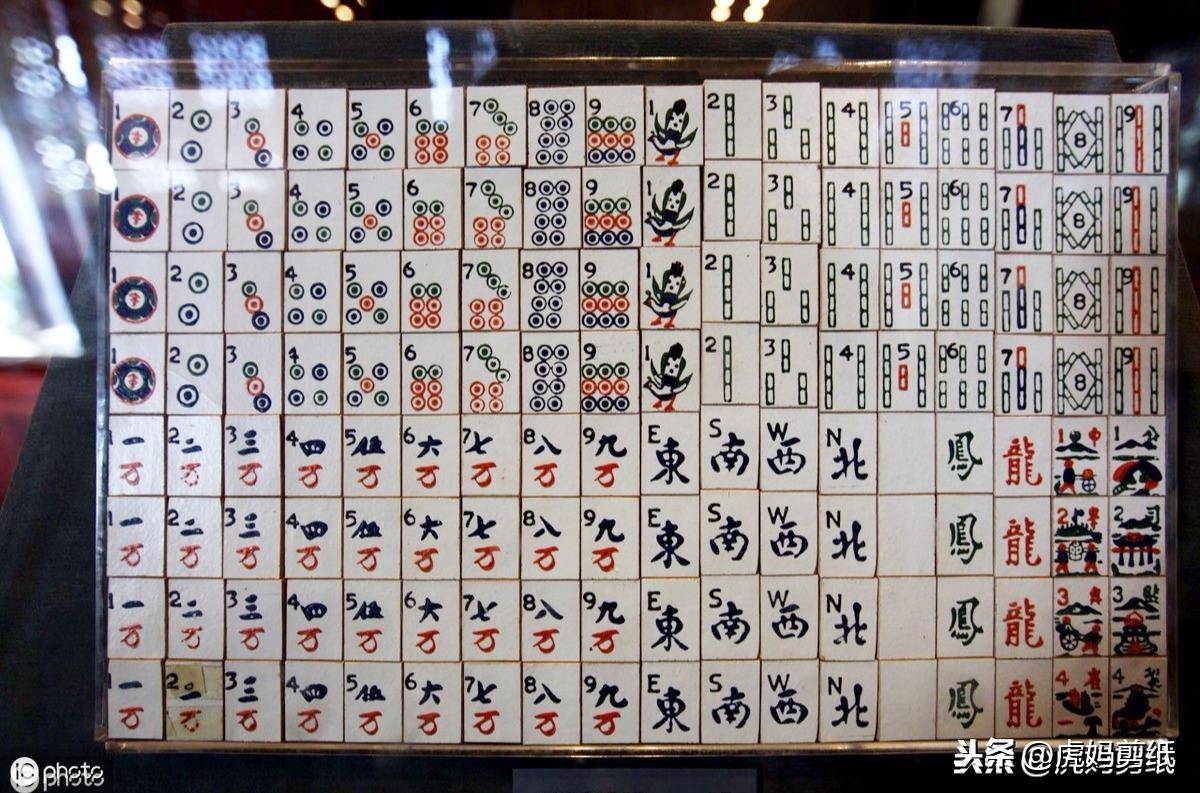 1 2 3 4 5 6 7 8 9 1 2 3 4 5 6 7 8 9
1 2 3 4 5 6 7 8 9 1 2 3 4 5 6 7 8 9
1 2 3 4 5 6 7 8 9 1 2 3 4 5 6 7 8 9
1 2 3 4 5 6 7 8 9 1 2 3 4 5 6 7 8 9
1 一万 2 二万 3 三万 4 四万 5 伍万 6 六万 7 七万 8 八万 9 九万 E 東 S 南 W 西 N 北 鳳 龍 1 1
1 一万 2 二万 3 三万 4 四万 5 伍万 6 六万 7 七万 8 八万 9 九万 E 東 S 南 W 西 N 北 鳳 龍 2 2
1 一万 2 二万 3 三万 4 四万 5 伍万 6 六万 7 七万 8 八万 9 九万 E 東 S 南 W 西 N 北 鳳 龍 3 3
1 一万 2 二万 3 三万 4 四万 5 伍万 6 六万 7 七万 8 八万 9 九万 E 東 S 南 W 西 N 北 鳳 龍 4 4
ic photo
头条 @虎妈剪纸